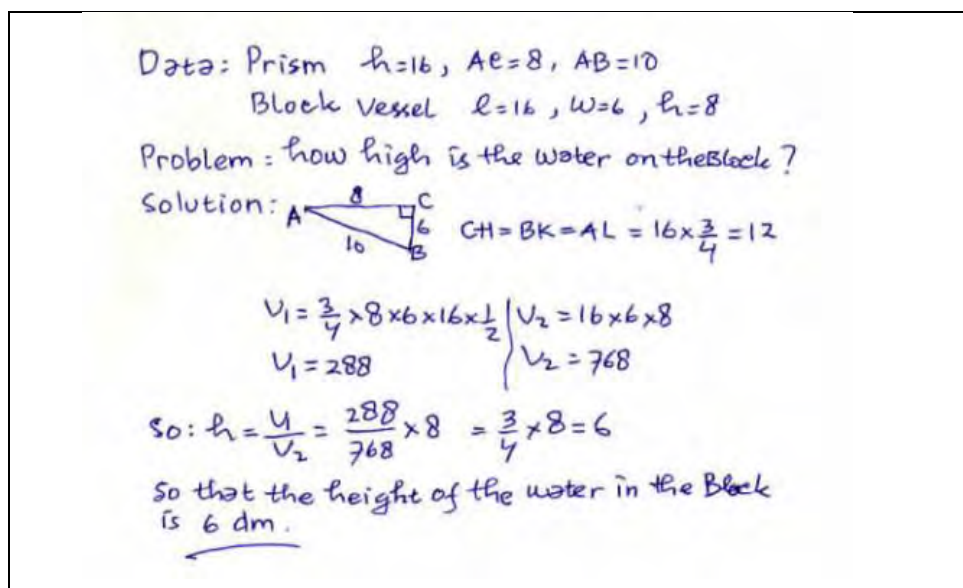 Data: Prism h=16, AC=8, AB=10
Block Vessel l=16, W=6, h=8
Problem: how high is the water on the Block?
Solution: A 8 C 6 B 10 CH=BK=AL=16×3/4=12
V₁=3/4×8×6×16×1/2 | V₂=16×6×8
V₁=288 | V₂=768
So: h=V₁/V₂=288/768×8=3/4×8=6
So that the height of the water in the Block
is 6 dm.